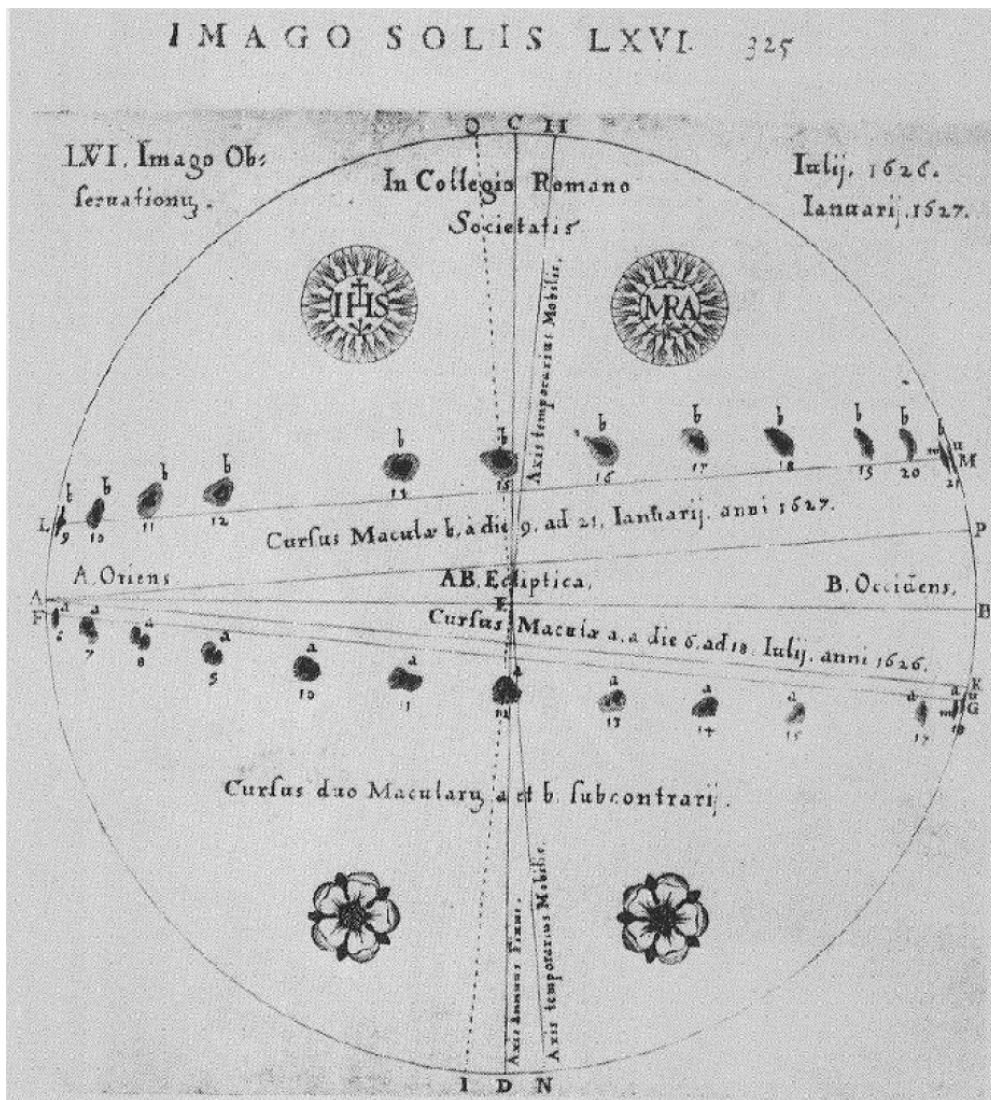 IMAGO SOLIS LXVI. 325
O C H
LVI. Imago Ob:
seruationũ.
Iulij. 1626.
Ianuarij. 1627.
In Collegio Romano
Societatis
IHS
MRA
Axis temporarius Mobilis.
b b b b b b b b b b b
L 9 10 11 12 13 15 16 17 18 19 20 21 M
Cursus Maculæ b, à die 9. ad 21. Ianuarij. anni 1627.
P
A. Oriens
AB. Ecliptica.
B. Occidens.
A E B
F
Cursus Maculæ a, a die 6. ad 18. Iulij. anni 1626.
K
a a a a a a a a a a a
6 7 8 9 10 11 12 13 14 15 17 18 G
Cursus duo Macularũ a et b. subcontrarij.
Axis annuus Fixus.
Axis temporarius Mobilis.
I D N